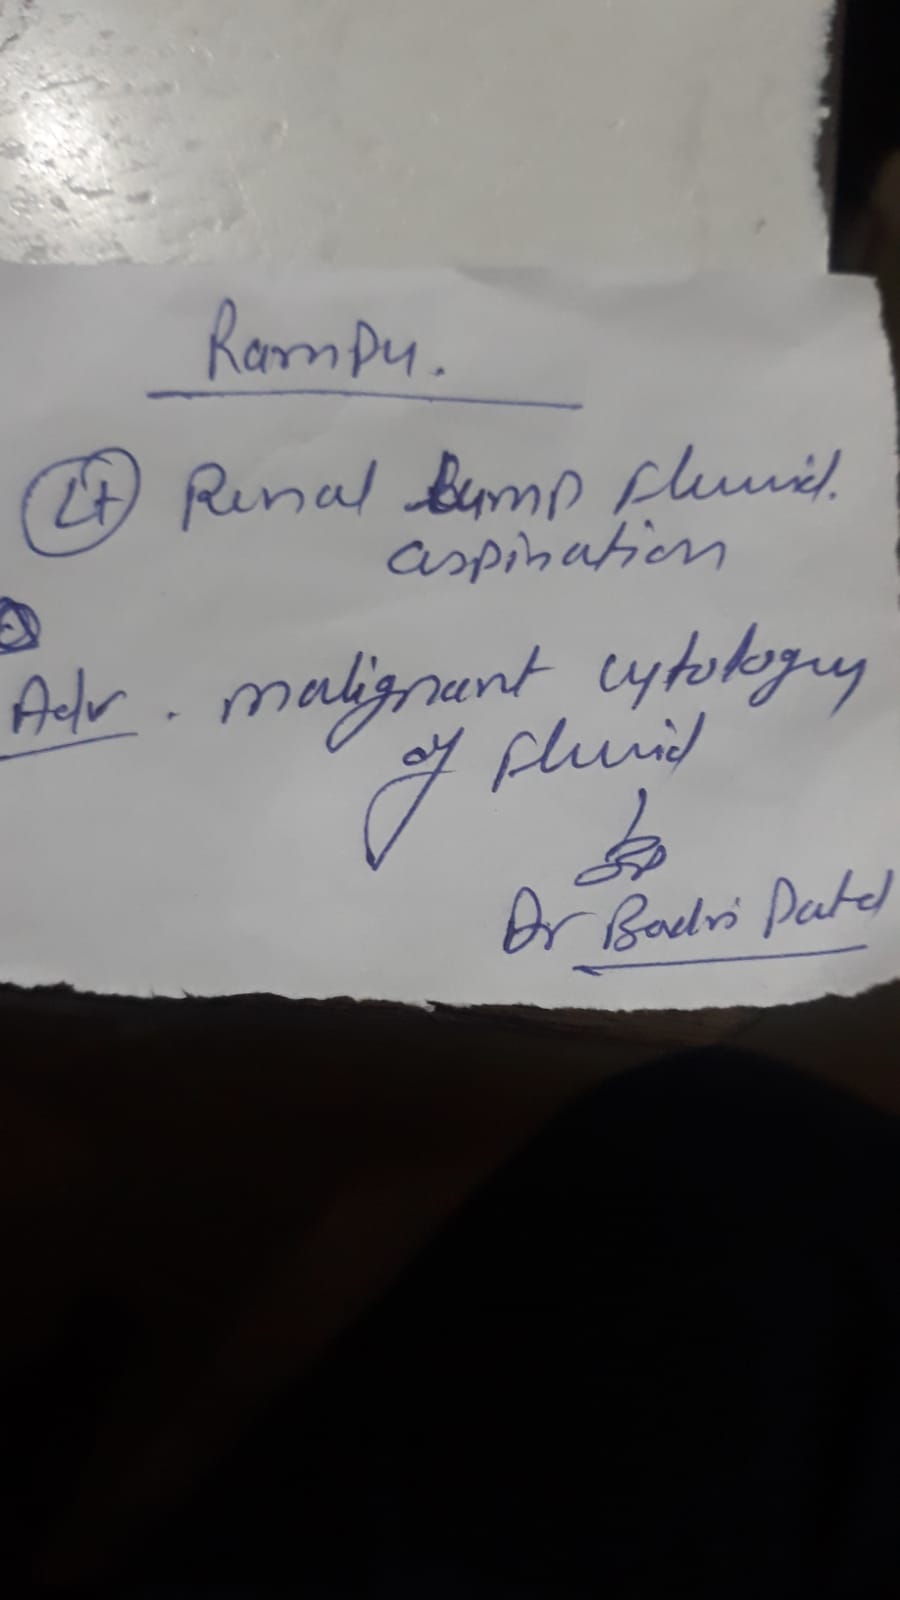 Rampu.
Lt Renal Lump Fluid.
aspiration
Adv. malignant cytology
of Fluid
Dr Badri Patel